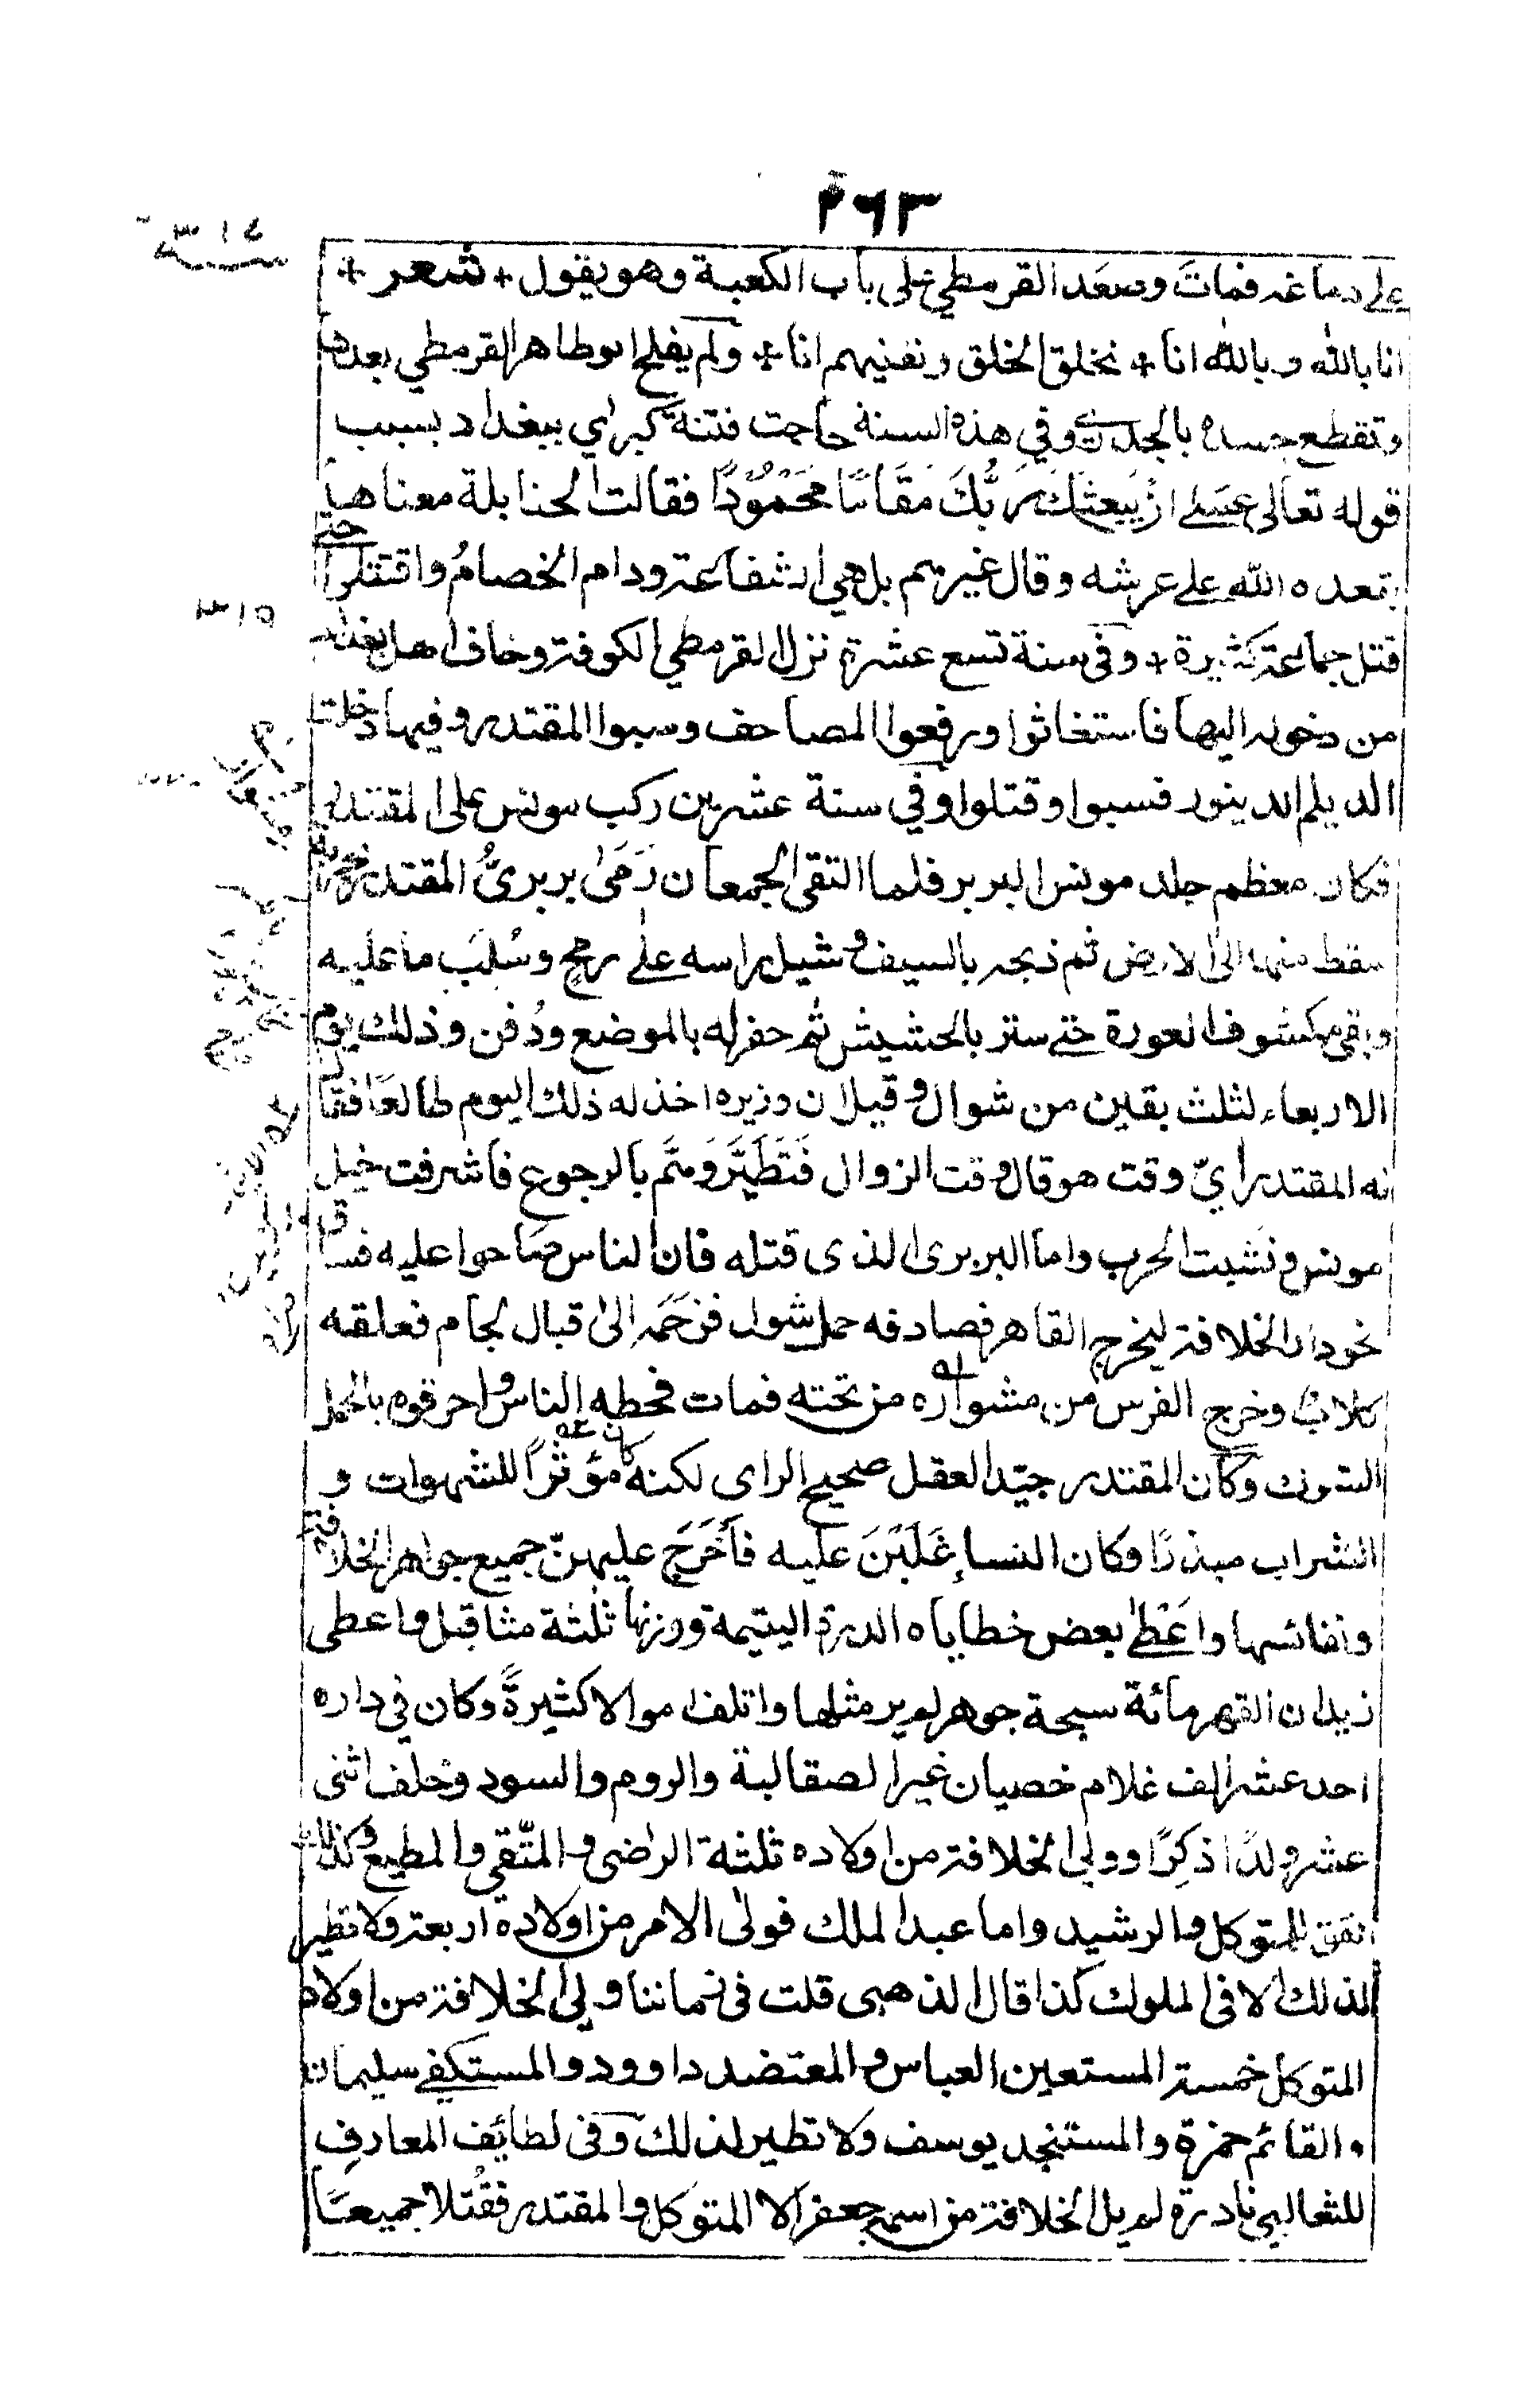 ٢٦٣
على دماغه فمات وصعد القرمطي على باب الكعبة وهو يقول + شعر +
انا بالله وبالله انا + نخلق الخلق ونفنيهم انا + ولم يفلح ابو طاهر القرمطي بعدها
وتقطع جسده بالجدري وفي هذه السنة هاجت فتنة كبراي ببغداد بسبب
قوله تعالى عَسٰى اَنْ يَبعثَكَ رَبُّكَ مَقَامًا مَحْمُوْدًا فقالت الحنابلة معناها
يقعده الله على عرشه وقال غيرهم بل هي الشفاعة ودام الخصامُ واقتتلوا حتى
قتل جماعة كثيرة + وفي سنة تسع عشرة نزل القرمطي الكوفة وخاف اهل بغداد
من دخوله اليها فاستغاثوا ورفعوا المصاحف وسبوا المقتدر وفيها دخلت
الديلم الدينور فسبوا وقتلوا وفي سنة عشرين ركب مونس على المقتدر
فكان معظم جلد مونس البربر فلما التقى الجمعان رَمَىٰ بربريُّ المقتدر بحربة
سقط منها الى الارض ثم ذبحه بالسيف وشيل براسه على رمحٍ وسُلِبَ ما عليه
وبقي مكشوف العورة حتى ستر بالحشيش ثم حفر له بالموضع ودُفن وذلك يوم
الاربعاء لثلث بقين من شوال وقيل ان وزيره اخذ له ذلك اليوم طالعًا فقال
له المقتدر أيّ وقت هو قال وقت الزوال فَتَطَيَّرَ وَهَمَّ بالرجوع فاشرفت خيل
مونس ونشبت الحرب واما البربرى الذى قتله فان الناس صاحوا عليه فسار
نحو دار الخلافة ليخرج القاهر فصادفه حمل شوك فزحَمَه الىٰ قبال لحام فعلقه
كلابٌ وخرج الفرس من مشواره من تحته فمات فحطه الناس واحرقوه بالحمل
الشوك وكان المقتدر جيّد العقل صحيح الراى لكنه كان مؤثرًا للشهوات و
الشراب مبذرًا وكان النساءِ غَلَبْنَ عليه فأَخْرَجَ عليهنّ جميع جواهر الخلافة
ونفائسها واَعْطٰى بعض خطاياه الدرة اليتيمة ووزنها ثلثة مثاقيل واعطى
زيدان القهرمانة سبحة جوهر لم ير مثلها واتلف اموالا كثيرةً وكان في داره
احد عشر الف غلام خصيان غير الصقالبة والروم والسود وخلف اثنى
عشر ولدًا ذكرًا وولي الخلافة من اولاده ثلثة الراضى والمتّقي والمطيع وكذلك
اتفق للمتوكل والرشيد واما عبد الملك فولى الامر من اولاده اربعة ولا نظير
لذلك الا فى الملوك كذا قال الذهبى قلت فى زماننا ولي الخلافة من اولاد
المتوكل خمسة المستعين العباس والمعتضد داوود والمستكفي سليمان
والقائم حمزة والمستنجد يوسف ولا نظير لذلك وفى لطائِف المعارف
للثعالبي نادرة لم يل الخلافة من اسمه جعفر الا المتوكل والمقتدر فقُتلا جميعًا